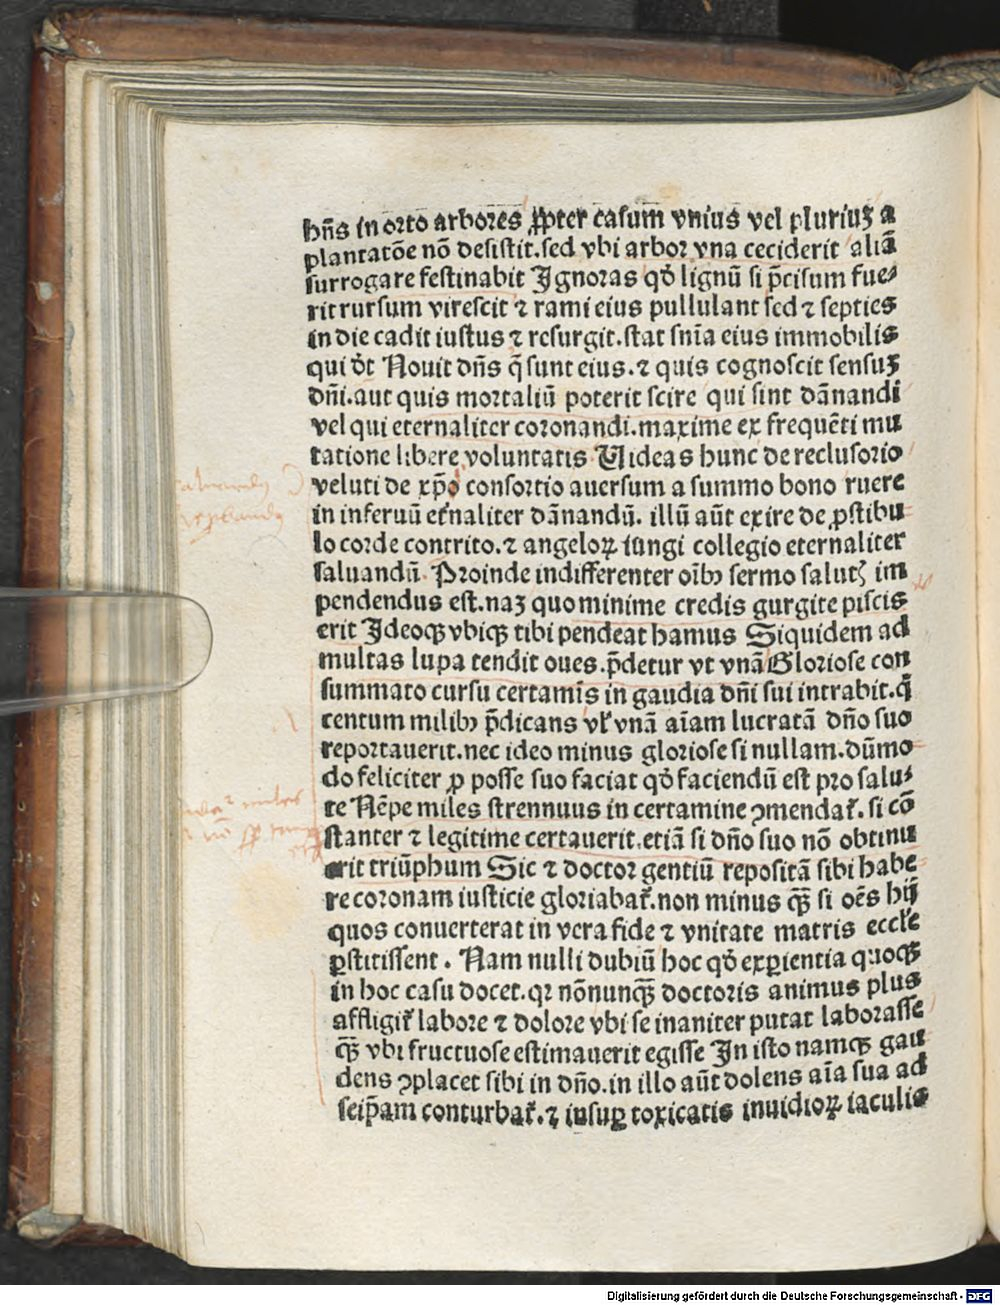 hn̄s in orto arbores ꝓpter casum vnius vel pluriuꝫ a
plantatōe nō desistit. sed vbi arbor vna ceciderit aliā
surrogare festinabit Ignoras qđ lignū si p̄cisum fue⸗
rit rursum virescit ⁊ rami eius pullulant sed ⁊ septies
in die cadit iustus ⁊ resurgit. stat sn̄ia eius immobilis
qui dt̄ Nouit dn̄s q̄ sunt eius. ⁊ quis cognoscit sensuꝫ
dn̄i. aut quis mortaliū poterit scire qui sint dānandi
vel qui eternaliter coronandi. maxime ex frequēti mu
tatione libere voluntatis Uideas hunc de reclusorio
veluti de xp̄o consortio auersum a summo bono ruere
in infernū et̄naliter dānandū. illū aūt exire de ꝓstibu⸗
lo corde contrito. ⁊ angeloꝝ iungi collegio eternaliter
saluandū. Proinde indifferenter oīb⁹ sermo salutꝭ im
pendendus est. naꝫ quo minime credis gurgite piscis
erit Ideoqꝫ vbiqꝫ tibi pendeat hamus Siquidem ad
multas lupa tendit oues. p̄detur vt vnā Gloriose con
summato cursu certamīs in gaudia dn̄i sui intrabit. q̇
centum milib⁹ p̄dicans vl̄ vnā aīam lucratā dn̄o suo
reportauerit. nec ideo minus gloriose si nullam. dūmo
do feliciter ꝓ posse suo faciat qđ faciendū est pro salu⸗
te Nēpe miles strennuus in certamine ꝯmendat̄. si cō
stanter ⁊ legitime certauerit. etiā si dn̄o suo nō obtinu
erit triūphum Sic ⁊ doctor gentiū repositā sibi habe⸗
re coronam iusticie gloriabat̄. non minus qꝫ̄ si oēs hij
quos conuerterat in vera fide ⁊ vnitate matris eccl̄e
ꝑstitissent. Nam nulli dubiū hoc qđ exꝑientia quoqꝫ
in hoc casu docet. qꝛ nōnunqꝫ̄ doctoris animus plus
affligit̄ labore ⁊ dolore vbi se inaniter putat laborasse
qꝫ̄ vbi fructuose estimauerit egisse In isto namqꝫ gau
dens ꝯplacet sibi in dn̄o. in illo aūt dolens aīa sua ad
seip̄am conturbat̄. ⁊ insuꝑ toxicatis inuidioꝝ iaculis
Digitalisierung gefördert durch die Deutsche Forschungsgemeinschaft - DFG